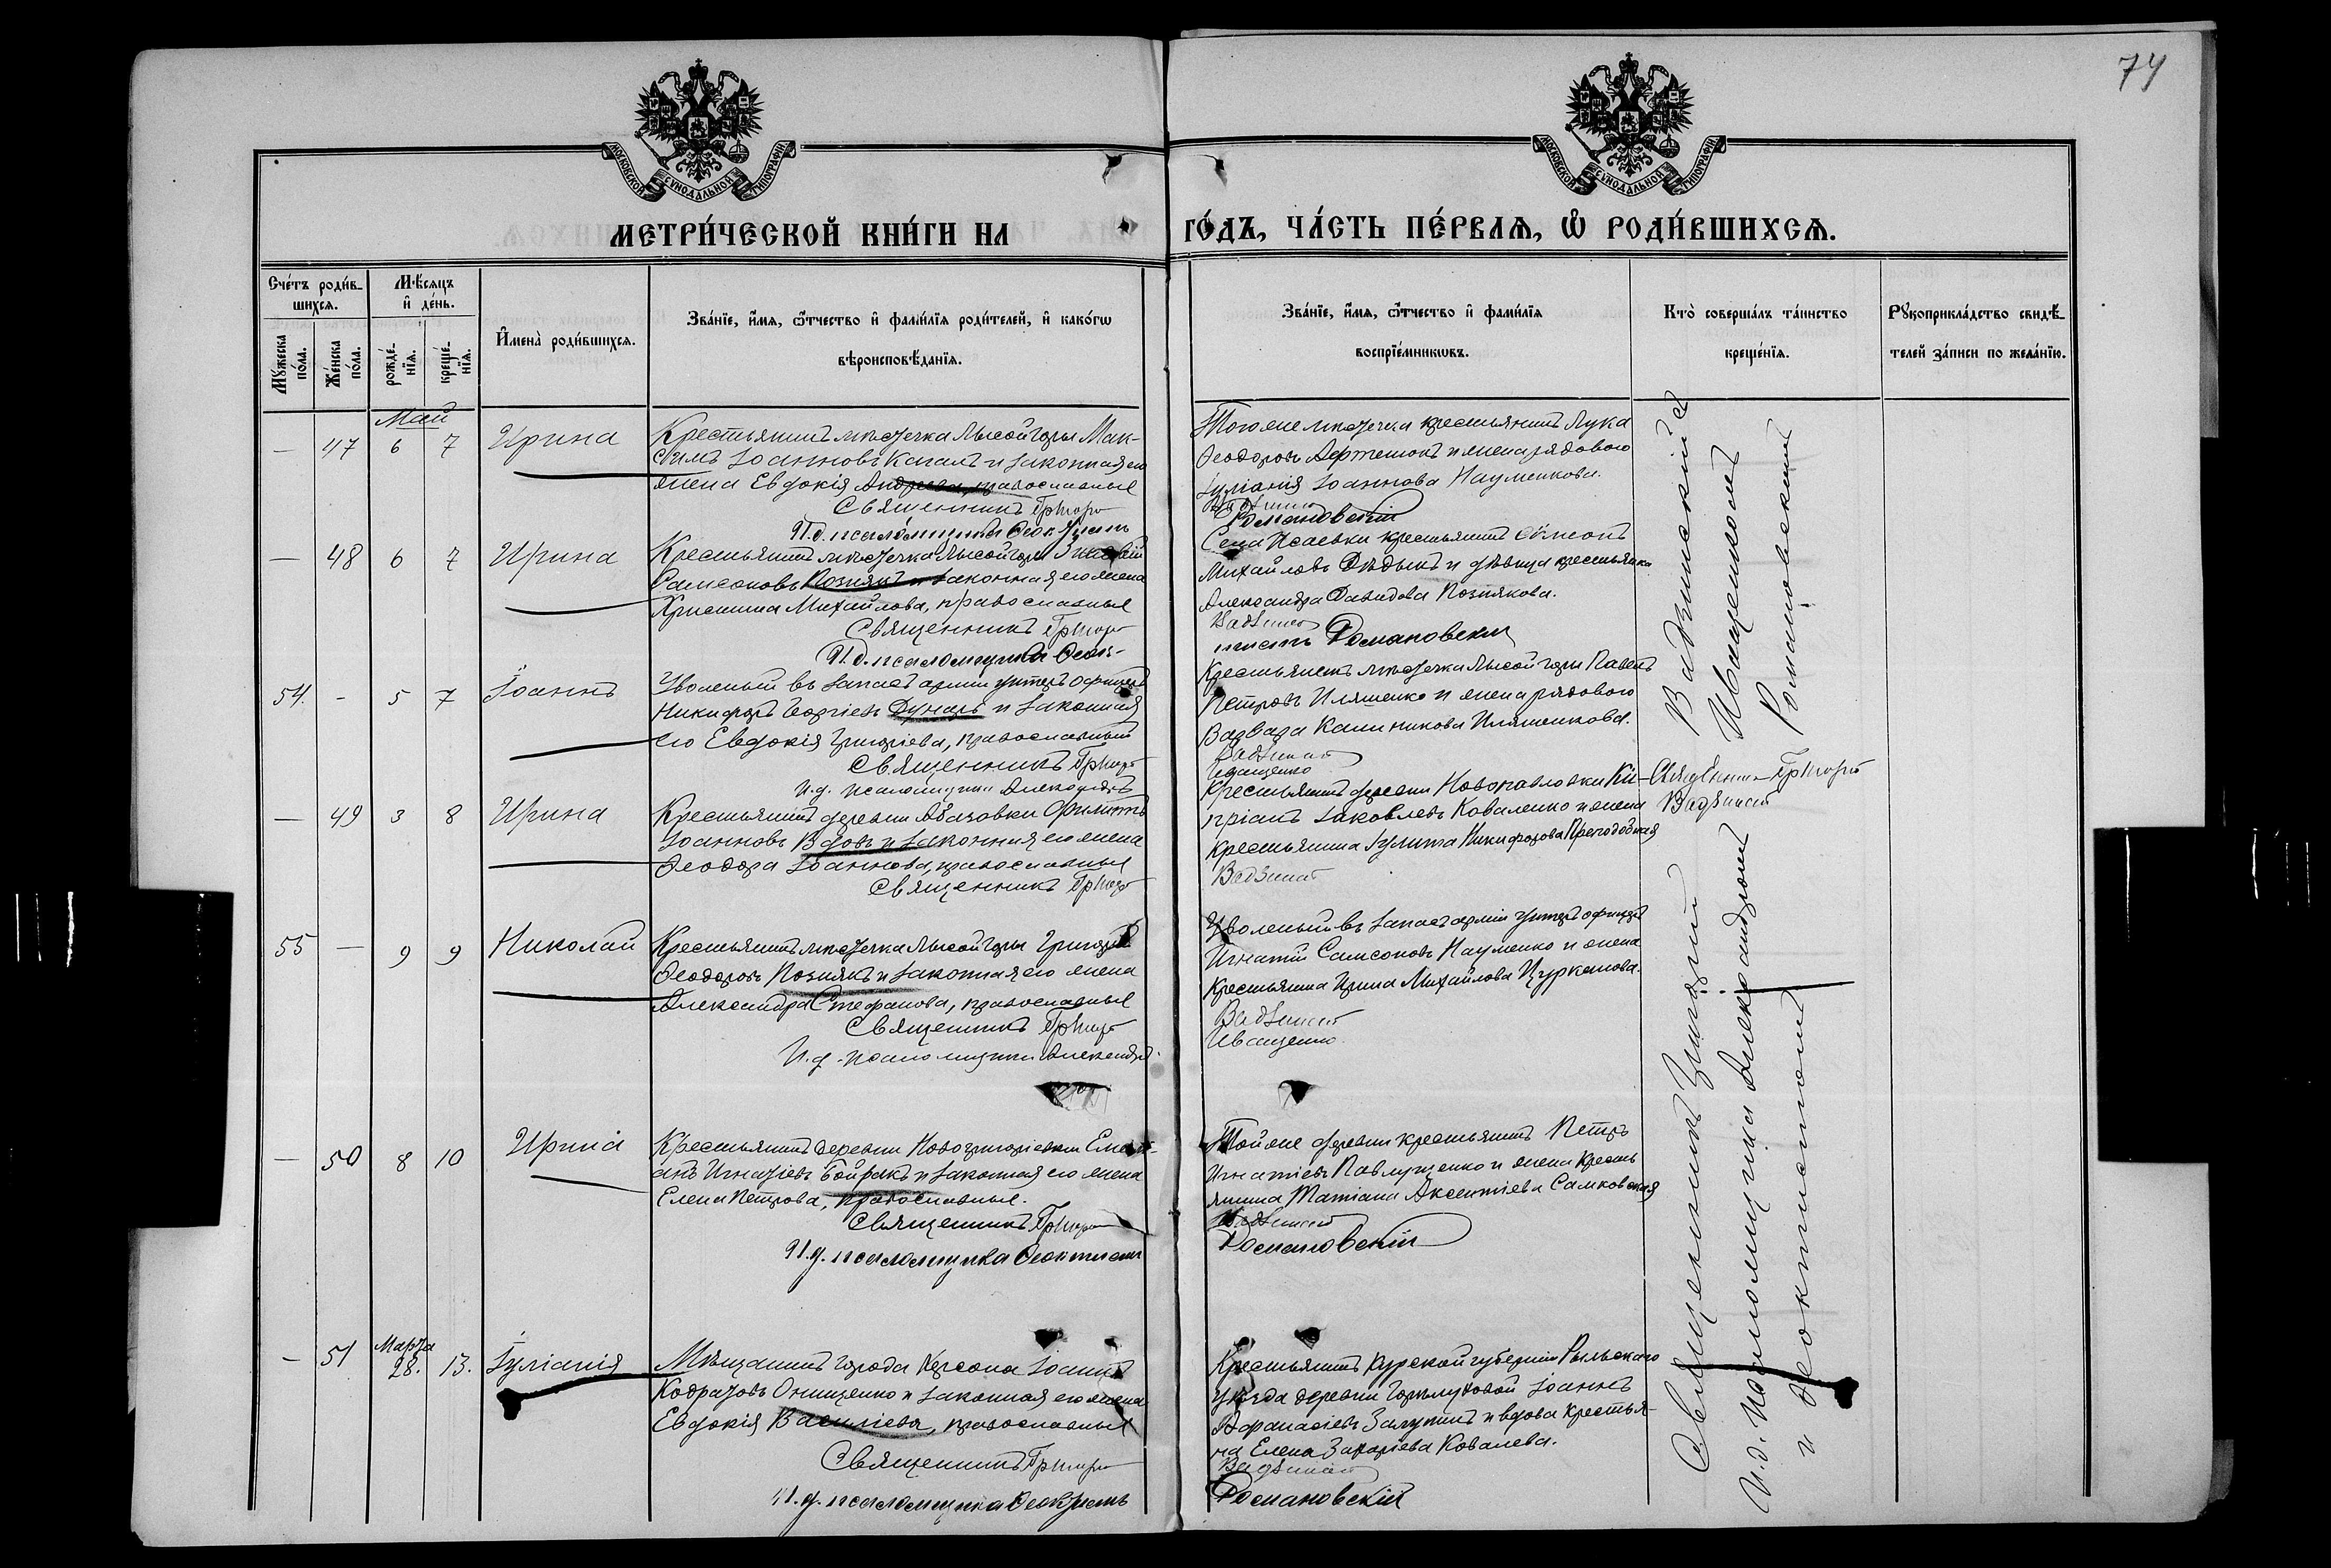 74
МОСКОВСКОЙ СѴНОДАЛЬНОЙ ТИПОГРАФІИ
МОСКОВСКОЙ СѴНОДАЛЬНОЙ ТИПОГРАФІИ
МЕТРИ́ЧЕСКОЙ КНИ́ГИ НА ГО́ДЪ, ЧА́СТЬ ПЕ́РВАѦ, Ѡ РОДИ́ВШИХСѦ.
Сче́тъ роди́в-
шихсѧ.
Мꙋ́жеска по́ла.
Же́нска по́ла.
Мѣ́сѧцъ
и҆ де́нь.
рожде́-
нїѧ.
креще́-
нїѧ.
И҆мена̀ роди́вшихсѧ.
Зва́нїе, и҆́мѧ, ѻ҆́тчество и҆ фами́лїѧ роди́телей, и҆ како́гѡ
вѣроисповѣ́данїѧ.
Зва́нїе, и҆́мѧ, ѻ҆́тчество и҆ фами́лїѧ
воспрїе́мникѡвъ.
Кто̀ соверша́лъ та́инство
креще́нїѧ.
Рꙋкоприкла́дство свидѣ́-
телей за́писи по жела́нїю.
Май
— 47 6 7 Ирина
Крестьянинъ мѣстечка Лысой горы Мак-
симъ Іоанновъ Качалъ и законная его
жена Евдокія Андреева, православные
Священникъ Григорій
И.д. псаломщика Ѳеоктистъ
Тогоже мѣстечка крестьянинъ Лука
Ѳеодоровъ и жена рядового
Іуліанія Іоаннова Науменкова.
Вадзинскій
Романовскій
— 48 6 7 Ирина
Крестьянинъ мѣстечка Лысой горы
Самсоновъ Познякъ и законная его жена
Христина Михайлова, православные
Священникъ Григорій
И.д. псаломщика Ѳеок-
Села Исаевки крестьянинъ Сѵмеонъ
Михайловъ Дѣдыкъ и дѣвица крестьянка
Александра Давидова Познякова.
Вадзинскій
тистъ Романовскій
54. - 5 7 Іоаннъ
Уволеный въ запасъ арміи унтеръ офицеръ
Никифоръ Георгіевъ Дунаръ и законная
его Евдокія Григоріева, православный
Священникъ Григорій
И.д. псаломщика Александръ
Крестьянинъ мѣстечка Лысой горы Павелъ
Петровъ Иляшенко и жена рядового
Варвара Калиникова Иляшенкова.
Вадзинскій
Иващенко
— 49 3 8 Ирина
Крестьянинъ деревни Абазовки Филиппъ
Іоанновъ Вдовъ и законная его жена
Ѳеодора Іоаннова, православные
Священникъ Григорій
Крестьянинъ деревни Новопавловки Ки-
пріанъ Іаковлевъ Коваленко и жена
крестьянина Іулитта Никифорова Преподобная
Вадзинскій
Священникъ Григорій
Вадзинскій
55 — 9 9 Николай
Крестьянинъ мѣстечка Лысой горы Григорій
Ѳеодоровъ Познякъ и законная его жена
Александра Стефанова, православные
Священникъ Григорій
И.д. псаломщика Александръ
Уволеный въ запасъ арміи унтеръ офицеръ
Игнатій Самсоновъ Науменко и жена
крестьянина Ирина Михайлова Цурканова.
Вадзинскій
Иващенко
— 50 8 10 Ирина
Крестьянинъ деревни Новогригоріевки Емелі-
анъ Игнатіевъ Бойракъ и законная его жена
Елена Петрова, православные.
Священникъ Григорій
И.д. псаломщика Ѳеоктистъ
Той же деревни крестьянинъ Петръ
Игнатіевъ Павлущенко и жена кресть
янина Татіана Аксентіева Самковская
Вадзинскій
Романовскій
— 51 Марта 28. 13. Іуліанія
Мѣщанинъ города Херсона Іоаннъ
Кодратовъ Онищенко и законная его жена
Евдокія Василіева, православные
Священникъ Григорій
И.д. псаломщика Ѳеоктистъ
Крестьянинъ Курской губерніи Рыльского
уѣзда деревни Іоаннъ
Аѳанасіевъ и вдова крестья-
на Елена Захаріева Ковалева.
Вадзинскій
Романовскій
Священникъ Григорій Вадзинскій съ
И.д. Псаломщика Александромъ Иващенкомъ
и Ѳеоктистомъ Романовскимъ